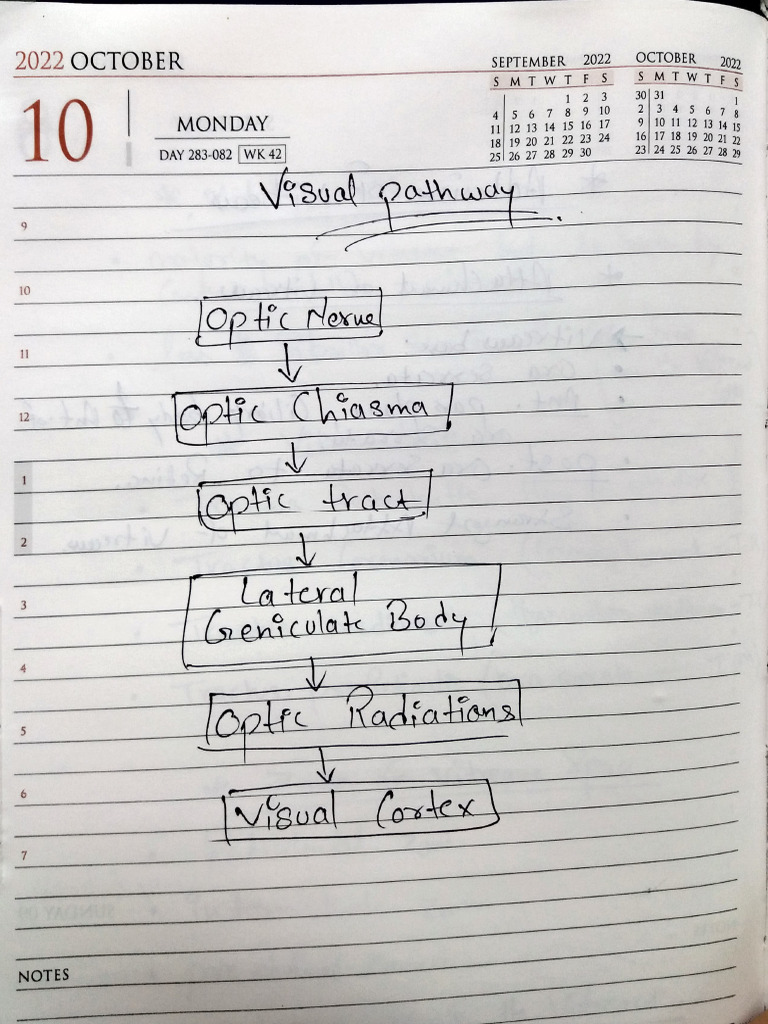 2022 OCTOBER
10
MONDAY
DAY 283-082 WK 42
SEPTEMBER 2022
S M T W T F S
1 2 3
4 5 6 7 8 9 10
11 12 13 14 15 16 17
18 19 20 21 22 23 24
25 26 27 28 29 30
OCTOBER 2022
S M T W T F S
30 31 1
2 3 4 5 6 7 8
9 10 11 12 13 14 15
16 17 18 19 20 21 22
23 24 25 26 27 28 29
Visual pathway
9
10
Optic Nerve
11
Optic Chiasma
12
1
Optic tract
2
3
Lateral
Geniculate Body
4
Optic Radiations
5
6
Visual Cortex
7
NOTES